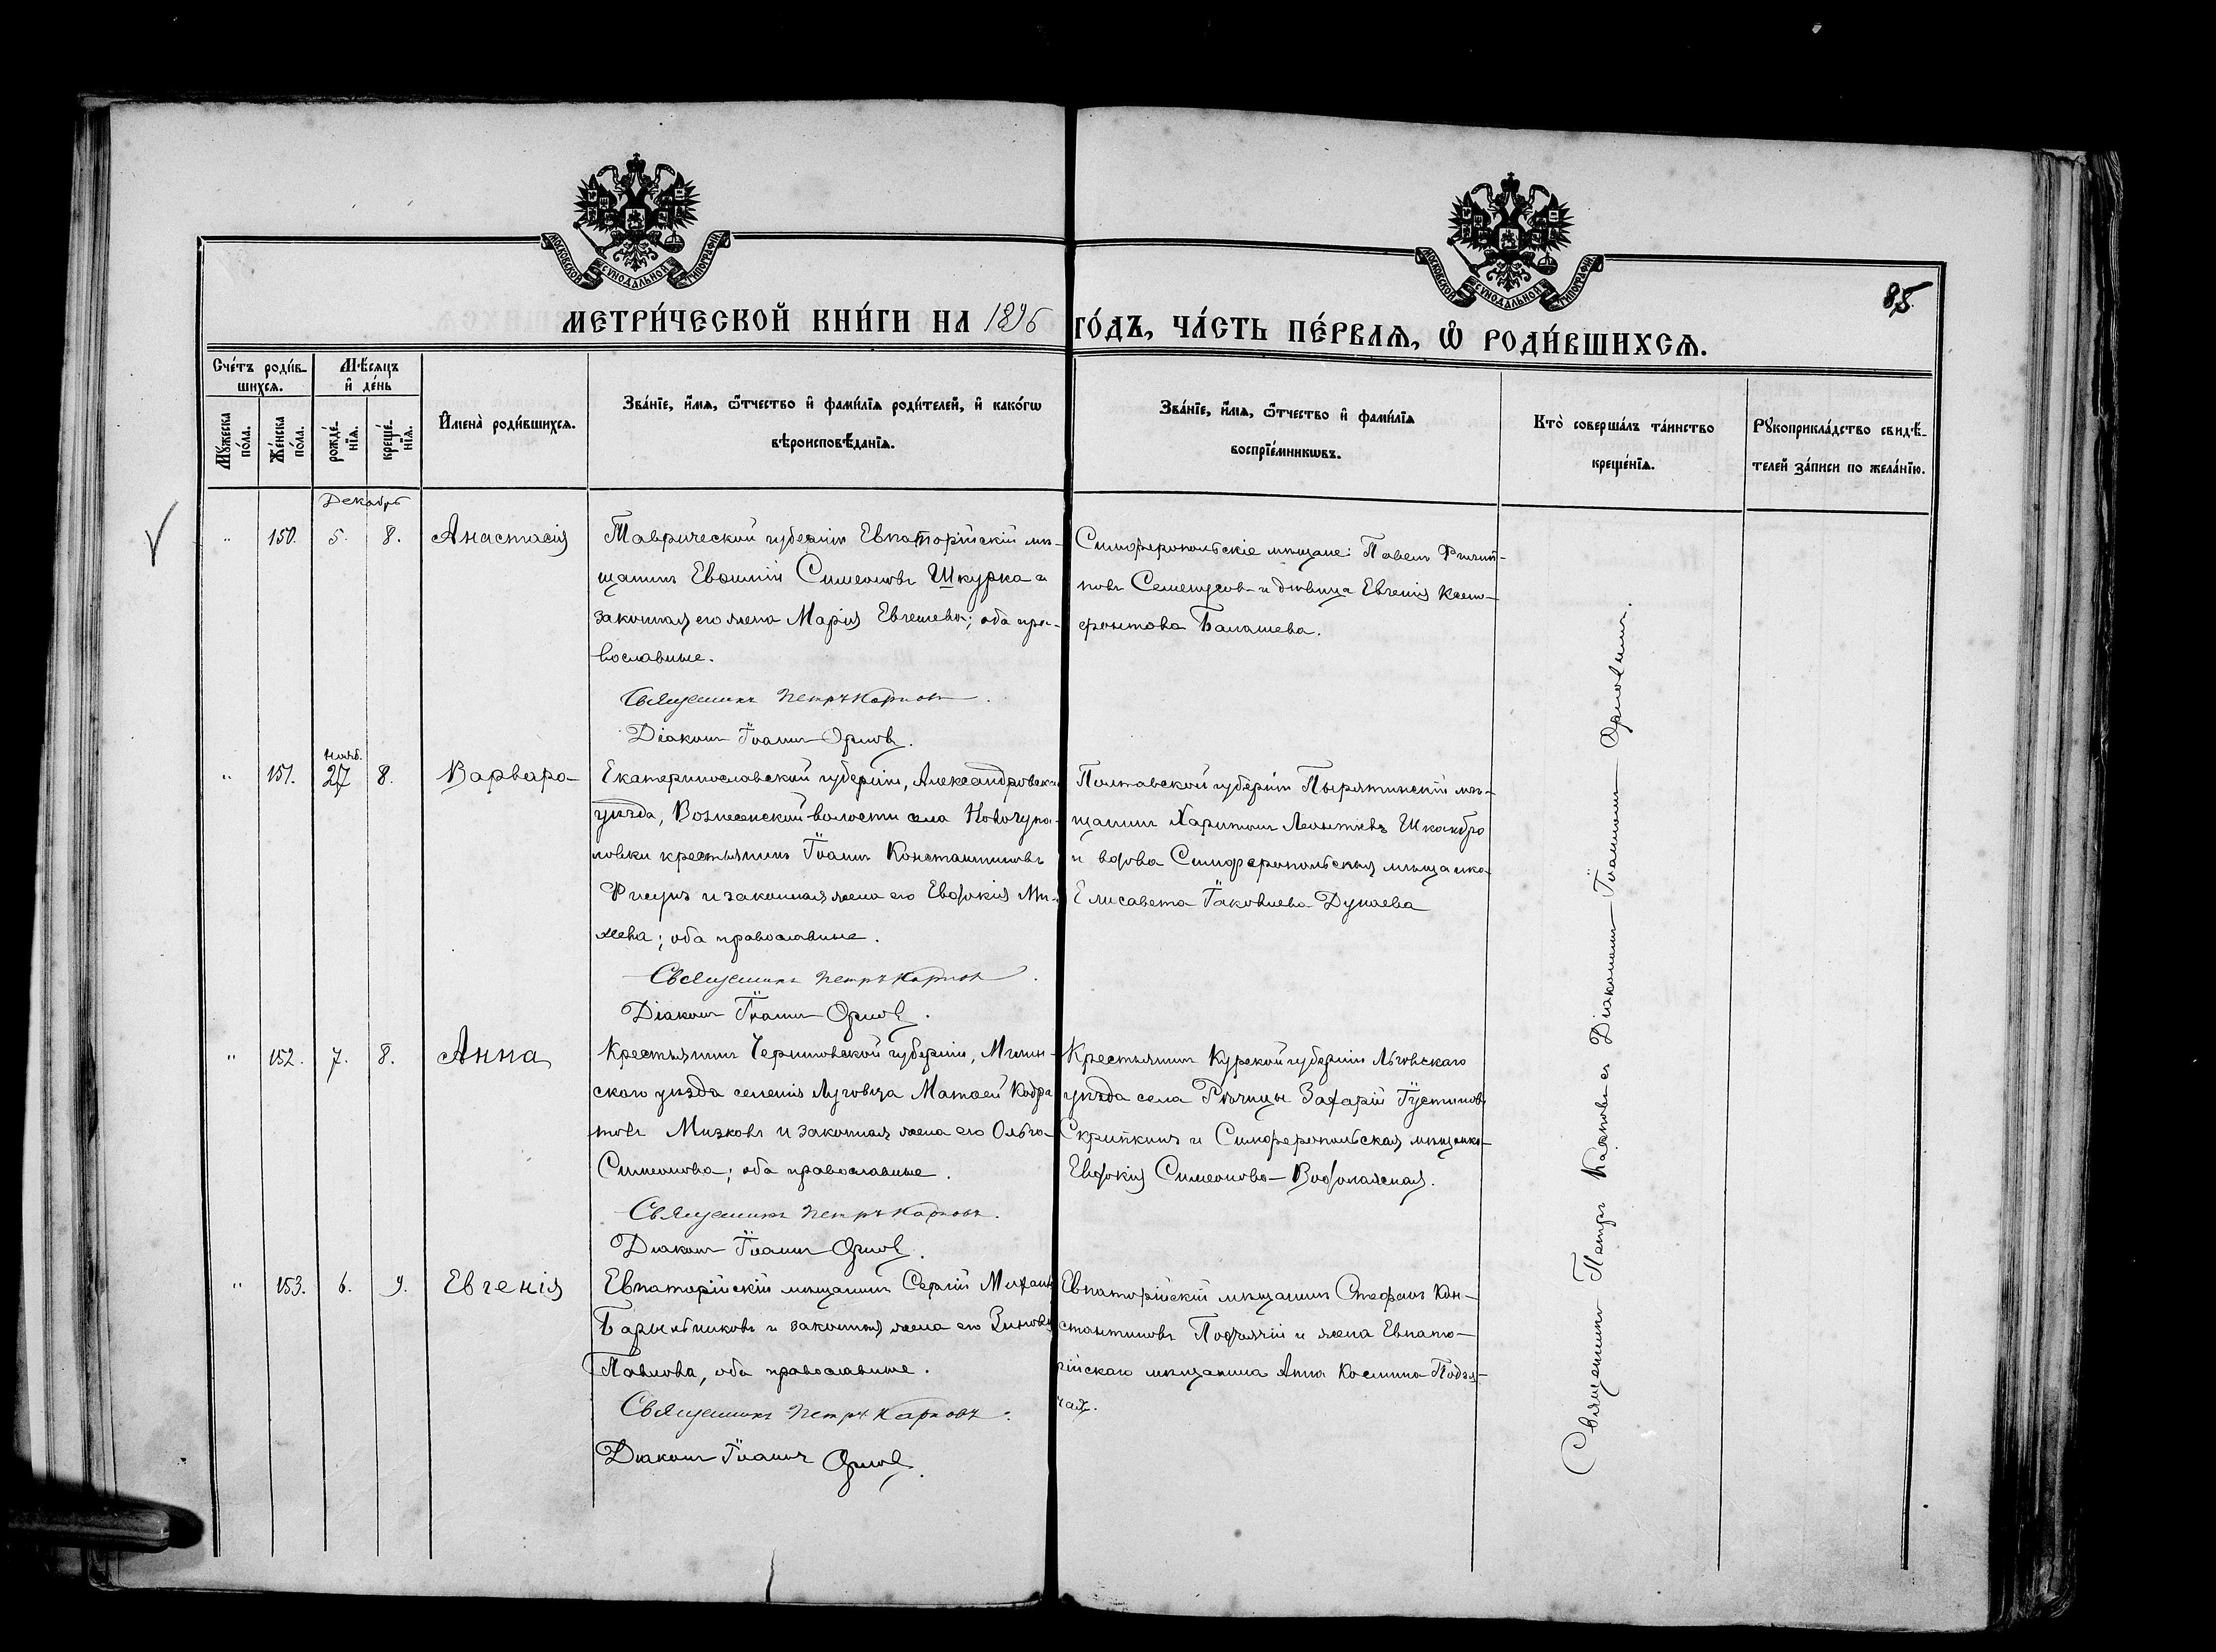 МОСКОВСКОЙ СѴНОДАЛЬНОЙ ТИПОГРАФІИ
МОСКОВСКОЙ СѴНОДАЛЬНОЙ ТИПОГРАФІИ
85.
МЕТРИ́ЧЕСКОЙ КНИ́ГИ НА 1896 ГО́ДЪ, ЧА́СТЬ ПЕ́РВАѦ, Ѡ҆ РОДИ́ВШИХСѦ.
Сче́тъ роди́в-
шихсѧ.
Мꙋ́жеска по́ла.
Же́нска по́ла.
Мѣ́сѧцъ
и҆ де́нь
рожде́нїѧ.
креще́нїѧ.
И҆мена̀ роди́вшихсѧ.
Зва́нїе, и҆́мѧ, ѻ҆́тчество и҆ фами́лїѧ роди́телей, и҆ како́гѡ
вѣроисповѣ́данїѧ.
Зва́нїе, и҆́мѧ, ѻ҆́тчество и҆ фами́лїѧ
воспрїе́мникѡвъ.
Кто̀ соверша́лъ та́инство
креще́нїѧ.
Рꙋкоприкла́дство свидѣ́-
телей за́писи по жела́нїю.
Декабрь
" 150. 5. 8. Анастасія
Таврической губерніи Евпаторійскій мѣ-
щанинъ Симеоновъ Шкурка и
законная его жена Марія Евгеньева; оба пра-
вославные.
Священникъ Петръ Карповъ.
Діаконъ Іоаннъ Орловъ.
Симферопольскіе мѣщане: Павелъ Филип-
повъ и дѣвица Евгенія Ксено-
фонтова Балашева.
Нояб.
" 151. 27 8. Варвара
Екатеринославской губерніи, Александровска
уѣзда, Вознесенской волости села
крестьянинъ Іоаннъ Константиновъ
и законная жена его Евдокія Ми-
оба православные.
Священникъ Петръ Карповъ.
Діаконъ Іоаннъ Орловъ.
Полтавской губерніи Пирятинскій мѣ-
щанинъ Харитонъ Леонтіевъ
и вдова Симферопольская мѣщанка
Елисавета Іаковлева Дунаева
" 152. 7. 8. Анна
Крестьянинъ Черниговской губерніи, Мглин-
скаго уѣзда селенія Луговца Матѳей Кодра
товъ и законная жена его Ольга
Симеонова; оба православные.
Священникъ Петръ Карповъ.
Діаконъ Іоаннъ Орловъ.
Крестьянинъ Курской губерніи Льговскаго
уѣзда села Рѣчицы Захарій Іустиновъ
Скрипкинъ и Симферопольская мѣщанка
Евдокія Симеонова Водолажская.
" 153. 6. 9. Евгенія
Евпаторійскій мѣщанинъ Сергій Михаил
Барышниковъ и законная жена его Зиновія
Павлова, оба православные.
Священникъ Петръ Карповъ.
Діаконъ Іоаннъ Орловъ.
Евпаторійскій мѣщанинъ Стефанъ Кон-
стантиновъ Подъячій и жена Евпато-
рійскаго мѣщанина Анна Космина Подъя-
чая.
Священникъ Петръ Карповъ съ Діакономъ Іоанномъ Орловымъ.